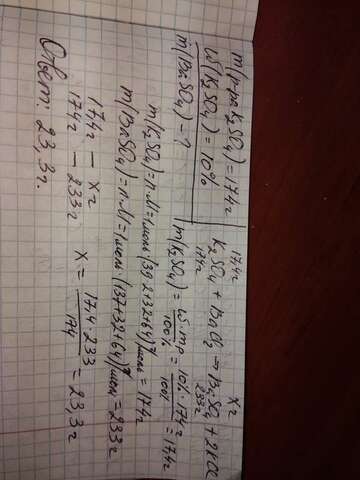 m(р-ра K₂SO₄) = 174г
ω(K₂SO₄) = 10%
m(BaSO₄) - ?
17,4г xг
K₂SO₄ + BaCl₂ → BaSO₄ + 2KCl
174г 233г
m(K₂SO₄) = ω · mр / 100% = 10% · 174г / 100% = 17,4г
m(K₂SO₄) = n · M = 1моль · (39·2+32+64) г/моль = 174г
m(BaSO₄) = n · M = 1моль · (137+32+64) г/моль = 233г
17,4г – xг
174г – 233г
x = 17,4 · 233 / 174 = 23,3г
Ответ: 23,3г.